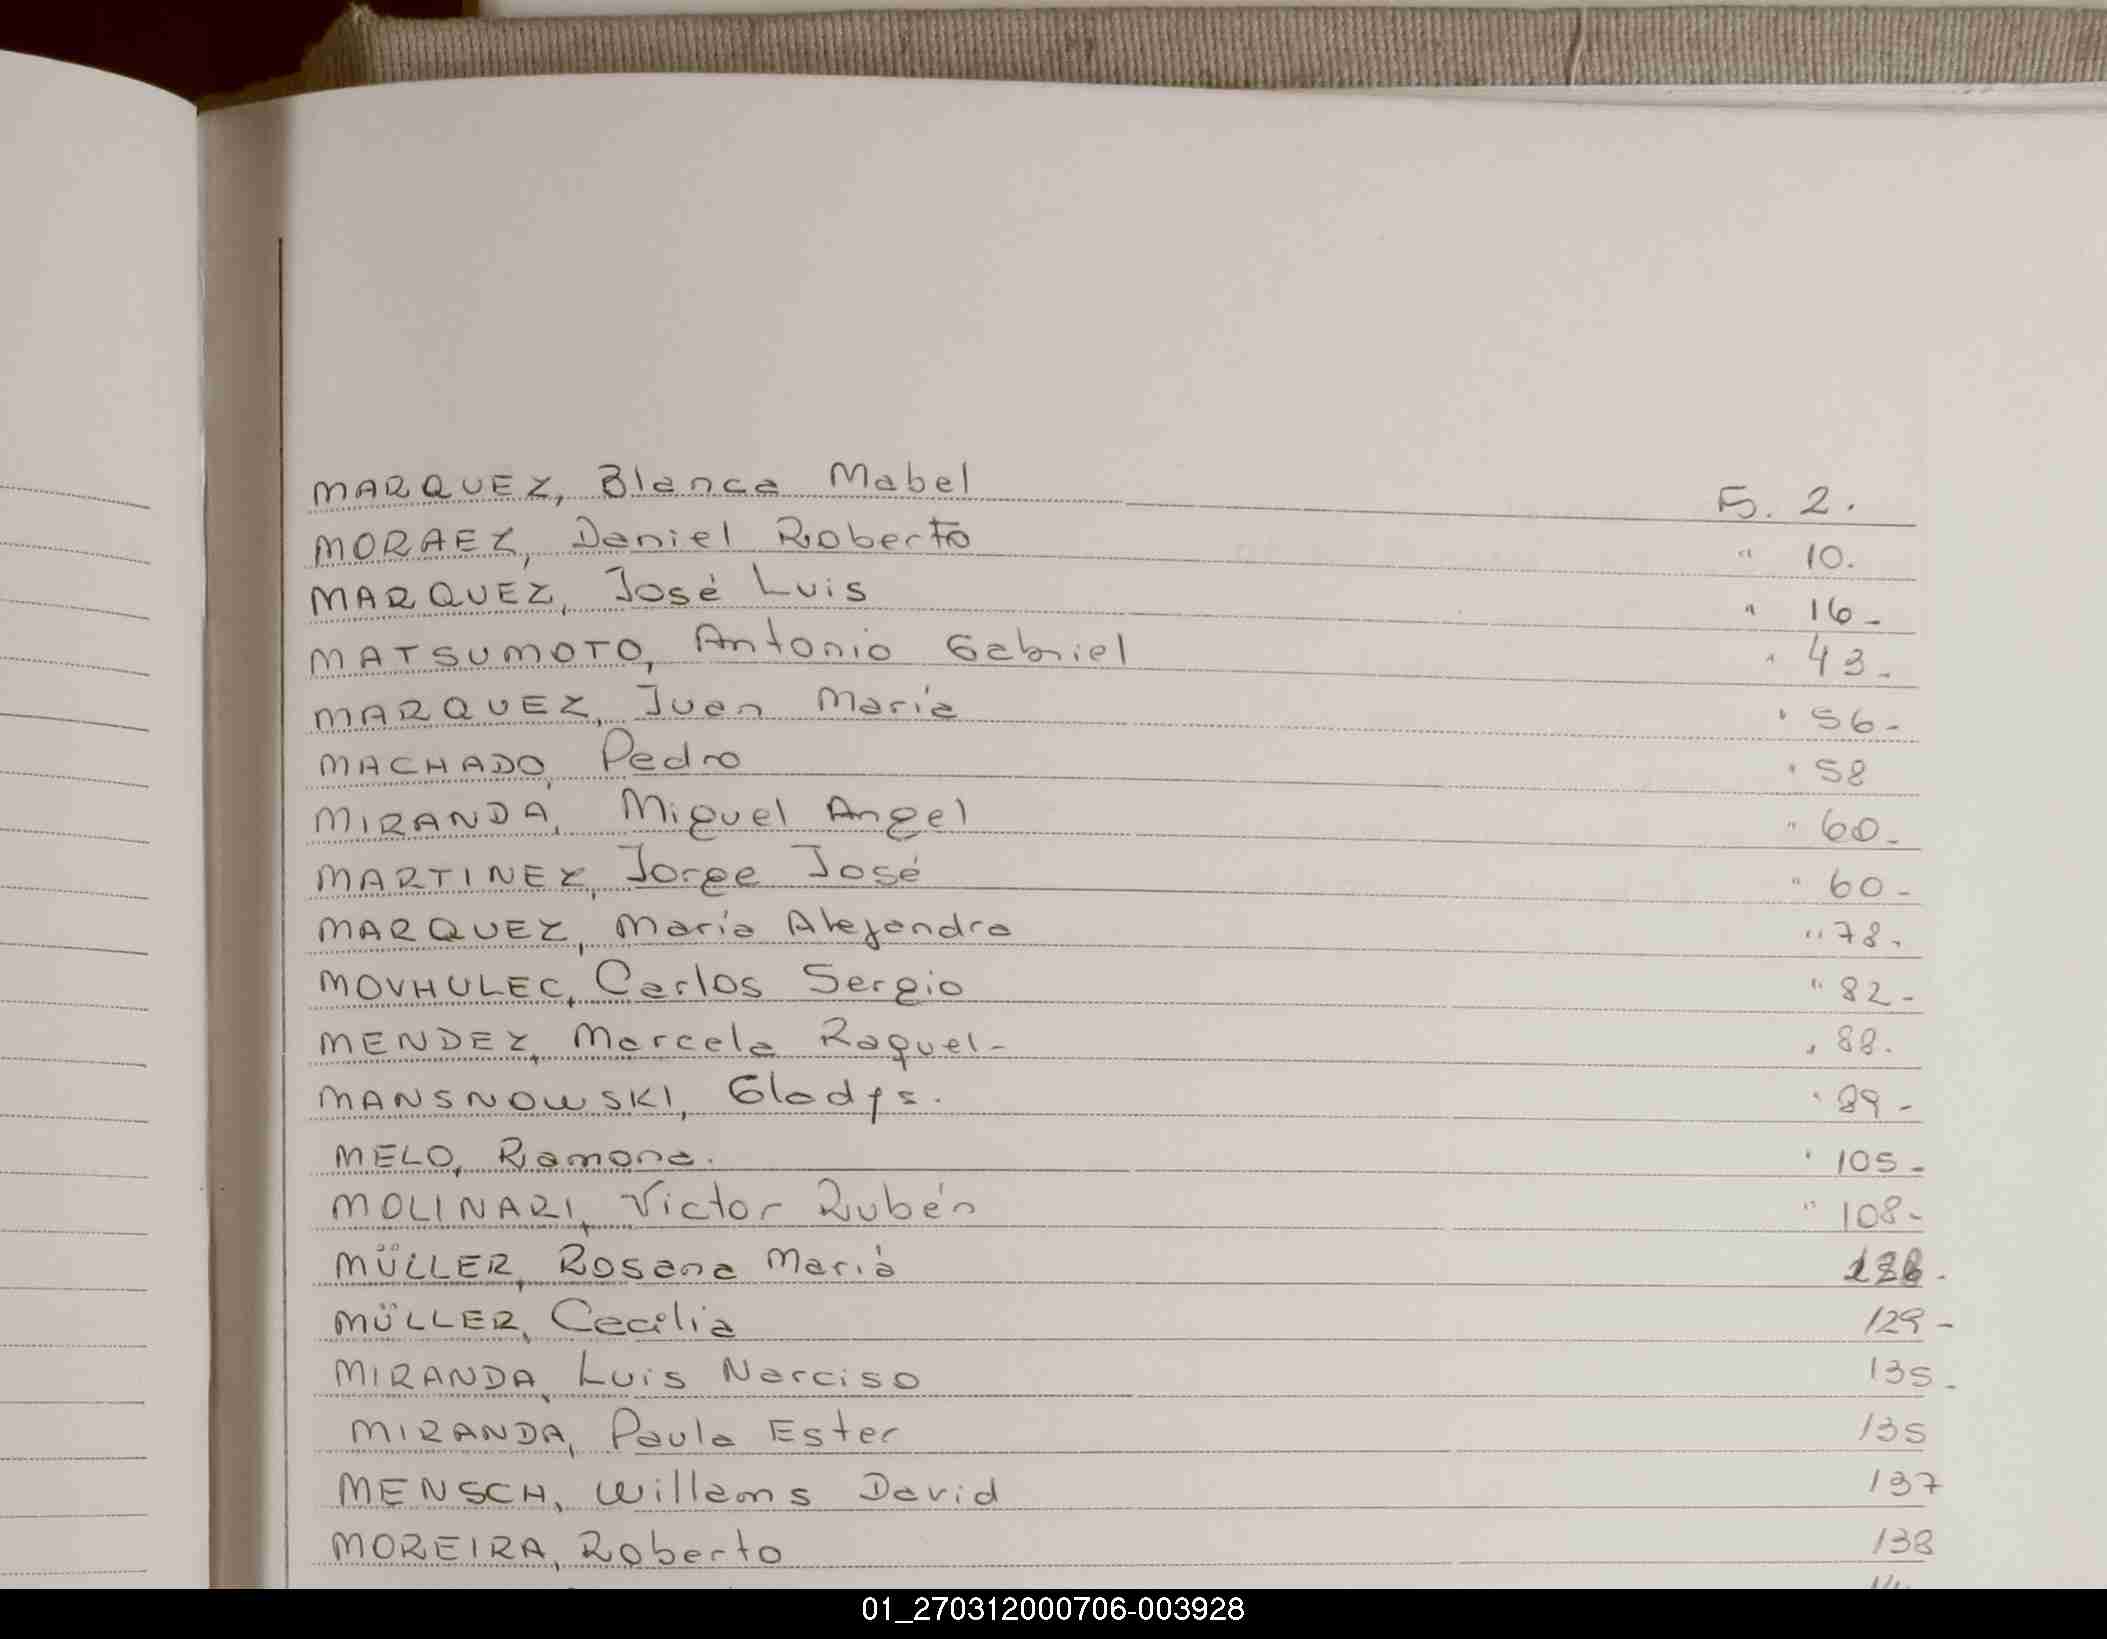 MARQUEZ, Blanca Mabel F. 2.
MORAEZ, Daniel Roberto " 10.
MARQUEZ, José Luis " 16-
MATSUMOTO, Antonio Gabriel " 43-
MARQUEZ, Juan María " 56-
MACHADO, Pedro " 58
MIRANDA, Miguel Angel " 60-
MARTINEZ, Jorge José " 60-
MARQUEZ, María Alejandra " 78.
MOVHULEC, Carlos Sergio " 82-
MENDEZ, Marcela Raquel- " 88.
MANSNOWSKI, Gladys. " 89-
MELO, Ramona. " 105-
MOLINARI, Victor Rubén " 108-
MÜLLER, Rosana María
MÜLLER, Cecilia 129-
MIRANDA, Luis Narciso 135-
MIRANDA, Paula Ester 135
MENSCH, Willams David 137
MOREIRA, Roberto 138
01_270312000706-003928